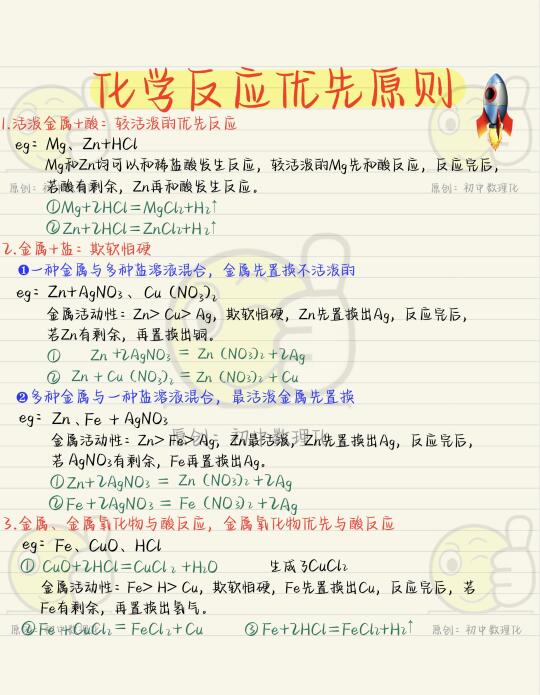 化学反应优先原则
1.活泼金属+酸：较活泼的优先反应
eg：Mg、Zn+HCl
Mg和Zn均可以和稀盐酸发生反应，较活泼的Mg先和酸反应，反应完后，
若酸有剩余，Zn再和酸发生反应。
原创：初中数理化
原创：初中数理化
①Mg+2HCl=MgCl₂+H₂↑
②Zn+2HCl=ZnCl₂+H₂↑
2.金属+盐：欺软怕硬
❶一种金属与多种盐溶液混合，金属先置换不活泼的
eg：Zn+AgNO₃、Cu (NO₃)₂
金属活动性：Zn>Cu>Ag，欺软怕硬，Zn先置换出Ag，反应完后，
若Zn有剩余，再置换出铜。
① Zn+2AgNO₃ = Zn (NO₃)₂+2Ag
② Zn+Cu (NO₃)₂ = Zn (NO₃)₂+Cu
❷多种金属与一种盐溶液混合，最活泼金属先置换
eg：Zn、Fe + AgNO₃
金属活动性：Zn>Fe>Ag，Zn最活泼，Zn先置换出Ag，反应完后，
原创：初中数理化
若AgNO₃有剩余，Fe再置换出Ag。
①Zn+2AgNO₃ = Zn (NO₃)₂+2Ag
②Fe+2AgNO₃ = Fe (NO₃)₂+2Ag
3.金属、金属氧化物与酸反应，金属氧化物优先与酸反应
eg：Fe、CuO、HCl
① CuO+2HCl=CuCl₂+H₂O 生成了CuCl₂
金属活动性：Fe>H>Cu，欺软怕硬，Fe先置换出Cu，反应完后，若
Fe有剩余，再置换出氢气。
②Fe+CuCl₂=FeCl₂+Cu ③Fe+2HCl=FeCl₂+H₂↑
原创：初中数理化
原创：初中数理化